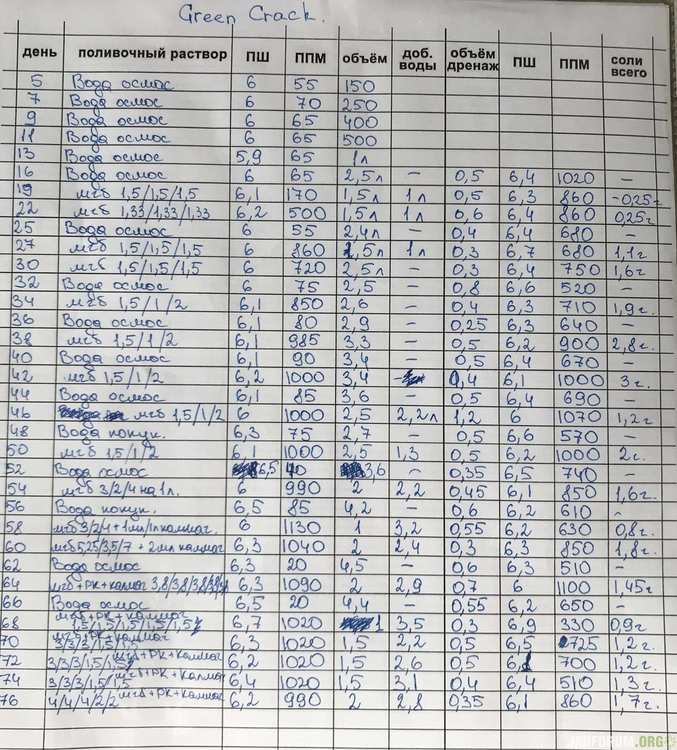 Green Crack.
день поливочный раствор ПШ ППМ объём доб. воды объём дренаж ПШ ППМ соли всего
5 Вода осмос 6 55 150
7 Вода осмос 6 70 250
9 Вода осмос 6 65 400
11 Вода осмос 6 65 500
13 Вода осмос 5,9 65 1л
16 Вода осмос 6 65 2,5л – 0,5 6,4 1020 –
19 мгб 1,5/1,5/1,5 6,1 170 1,5л 1л 0,5 6,3 860 -0,25г
22 мгб 1,33/1,33/1,33 6,2 500 1,5л 1л 0,6 6,4 860 0,25г
25 Вода осмос 6 55 2,4л – 0,4 6,4 680 –
27 мгб 1,5/1,5/1,5 6 860 1,5л 1л 0,3 6,7 680 1,1г
30 мгб 1,5/1,5/1,5 6 720 2,5л – 0,3 6,4 750 1,6г
32 Вода осмос 6 75 2,5 – 0,8 6,6 520 –
34 мгб 1,5/1/2 6,1 850 2,6 – 0,4 6,3 710 1,9г.
36 Вода осмос 6,1 80 2,9 – 0,25 6,3 640 –
38 мгб 1,5/1/2 6,1 985 3,3 – 0,5 6,2 900 2,8г.
40 Вода осмос 6,1 90 3,4 – 0,5 6,4 670 –
42 мгб 1,5/1/2 6,2 1000 3,4 0,4 6,1 1000 3г.
44 Вода осмос 6,1 85 3,6 – 0,5 6,4 690 –
46 мгб 1,5/1/2 6 1000 2,5 2,2л 1,2 6 1070 1,2г
48 Вода покуп. 6,3 75 2,7 – 0,5 6,6 570 –
50 мгб 1,5/1/2 6,1 1000 2,5 1,3 0,5 6,2 1000 2г.
52 Вода осмос 6,5 3,6 – 0,35 6,5 740 –
54 мгб 3/2/4 на 1л. 6 990 2 2,2 0,45 6,1 850 1,6г.
56 Вода покуп. 6,5 85 4,2 – 0,6 6,2 610 –
58 мгб 3/2/4+1мл/л калмаг. 6 1130 1 3,2 0,55 6,2 630 0,8г.
60 мгб 5,25/3,5/7 + 2мл калмаг 6,3 1040 2 2,4 0,3 6,3 850 1,8г.
62 Вода осмос 6,3 20 4,5 – 0,6 6,3 510 –
64 мгб+рк+калмаг 3,8/3,8/3,8 6,3 1090 2 2,9 0,7 6 1100 1,45г
66 Вода осмос 6,5 20 4,4 – 0,55 6,2 650 –
68 мгб+рк+калмаг 1,5/1,5/1,5/1,5/1,5 6,7 1020 1 3,5 0,3 6,9 330 0,9г
70 мгб+рк+калмаг 3/3/3/1,5/1,5 6,3 1020 1,5 2,2 0,5 6,5 725 1,2г.
72 3/3/3/1,5/1,5 мгб+рк+калмаг 6,2 1020 1,5 2,6 0,5 6,1 700 1,2г.
74 3/3/3/1,5/1,5 мгб+рк+калмаг 6,4 1020 1,5 3,1 0,4 6,4 510 1,3г
76 4/4/4/2/2 мгб+рк+калмаг 6,2 990 2 2,8 0,35 6,1 860 1,7г.